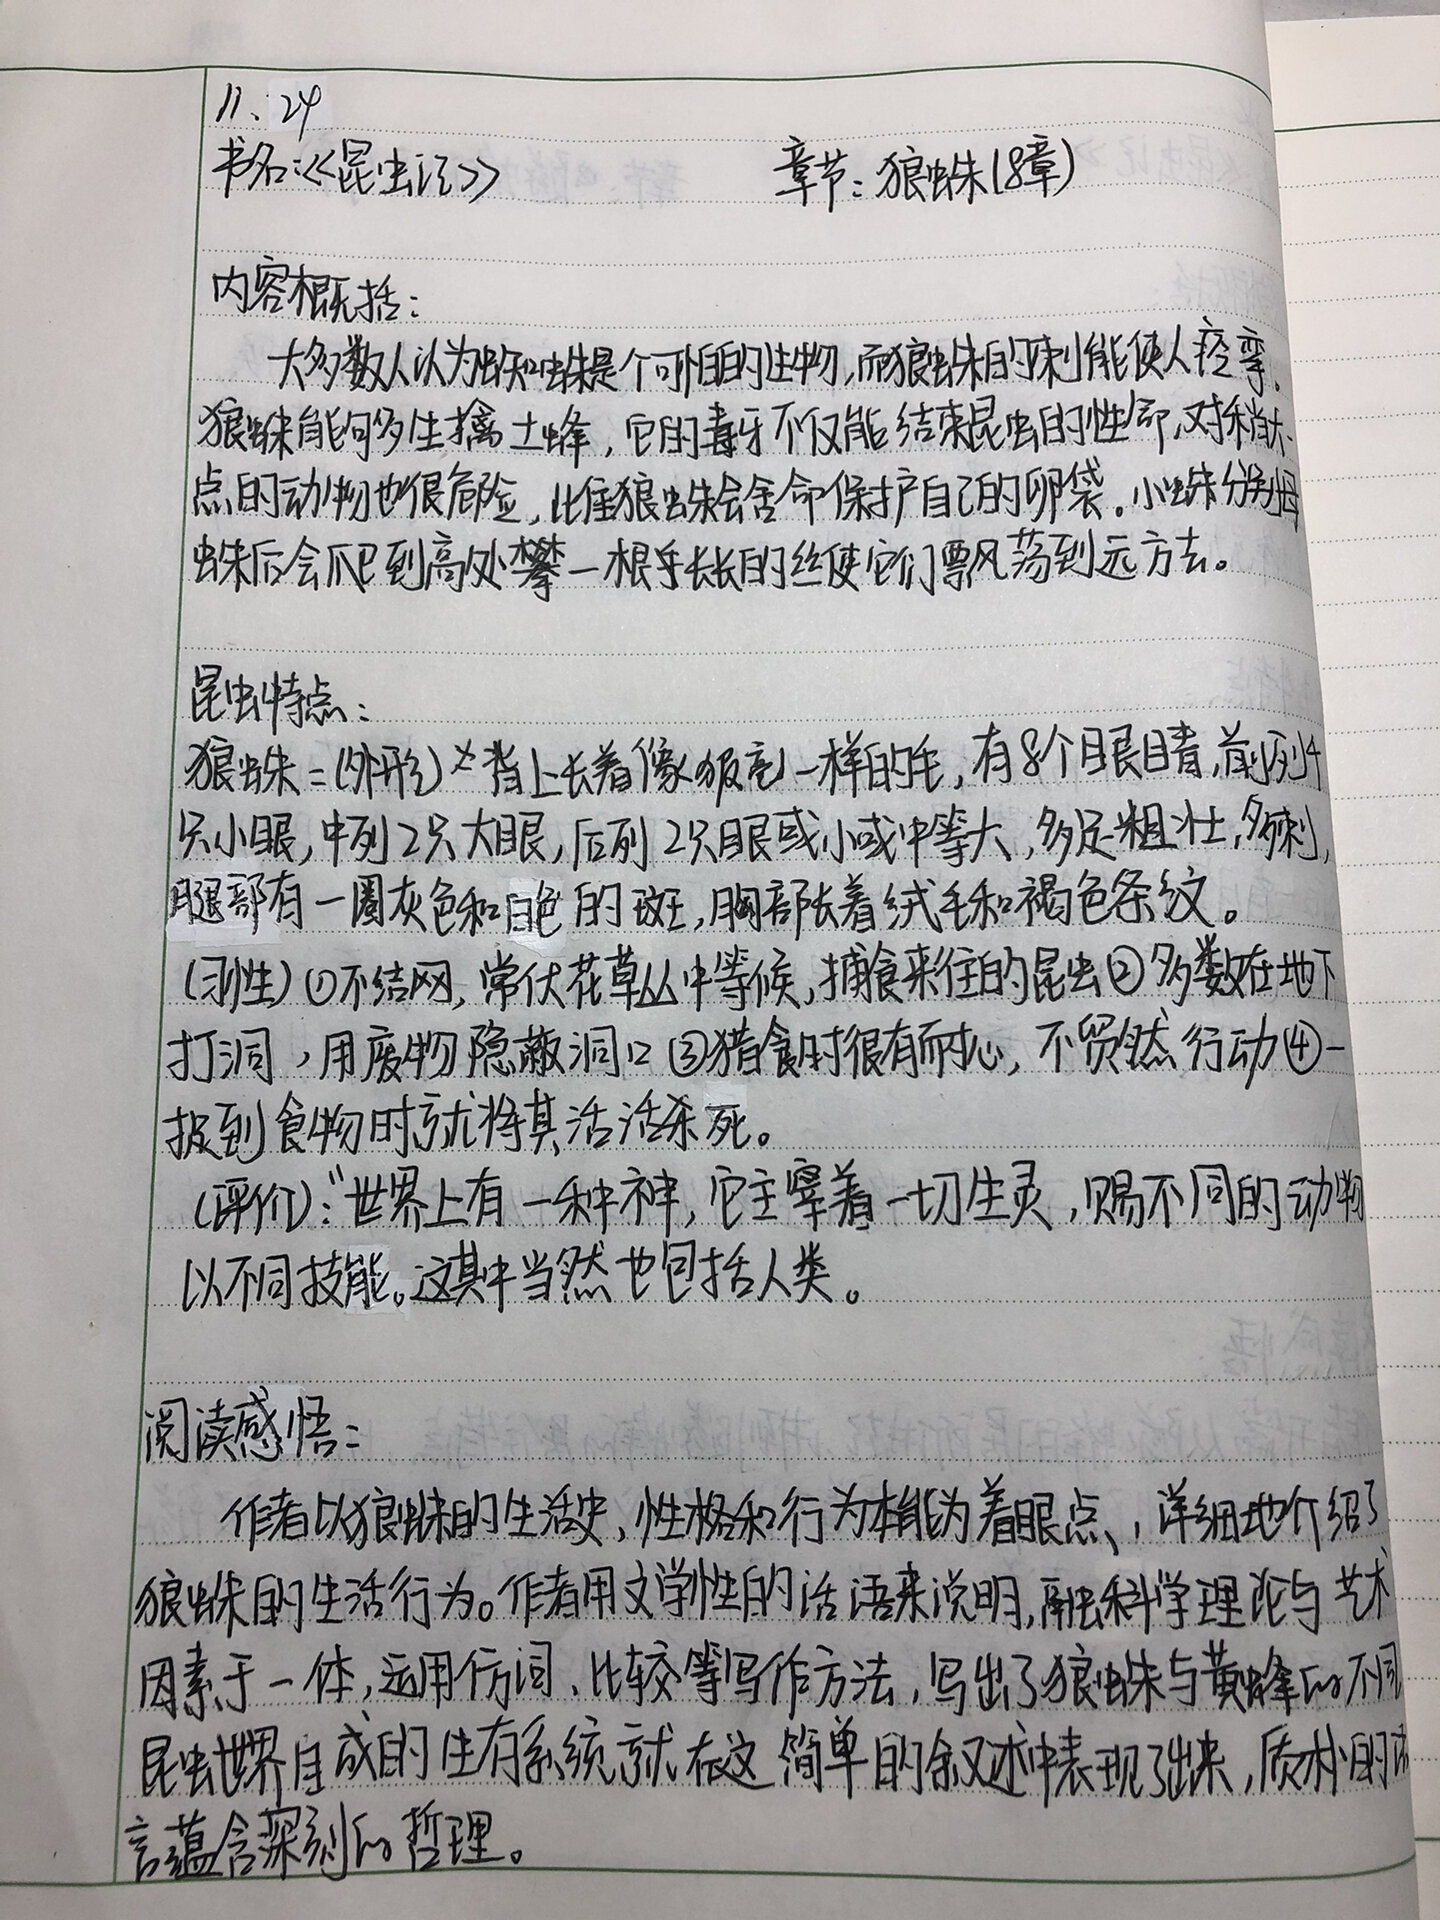 11.24
书名:《昆虫记》 章节:狼蛛(8章)
内容概括:
大多数人认为蜘蛛是个可怕的生物,而狼蛛的刺能使人痉挛。
狼蛛能够生擒土蜂,它的毒牙不仅能结束昆虫的性命,对稍大
点的动物也很危险,此佳狼蛛会舍命保护自己的卵袋。小蛛分离母
蛛后会爬到高处攀一根手长长的丝使它们飘荡到远方去。
昆虫特点:
狼蛛=(外形)背上长着像狼毫一样的毛,有8个眼睛,前列4
只小眼,中列2只大眼,后列2只眼或小或中等大,多足粗壮,多刺,
腿部有一圈灰色和白色的斑,胸部长着绒毛和褐色条纹。
(习性)①不结网,常伏花草丛中等候,捕食来往的昆虫②多数在地下
打洞,用废物隐蔽洞口③猎食时很有耐心,不贸然行动④一
扱到食物时就将其活活杀死。
(评价):“世界上有一种神,它主宰着一切生灵,赐不同的动物
以不同技能。这其中当然也包括人类。
阅读感悟:
作者以狼蛛的生活史,性格和行为本能为着眼点,详细地介绍了
狼蛛的生活行为。作者用文学性的话语来说明,融科学理论与艺术
因素于一体,运用仿词、比较等写作方法,写出了狼蛛与黄蜂的不同
昆虫世界自成的生存系统就在这简单的叙述中表现了出来,质朴的语
言蕴含深刻的哲理。